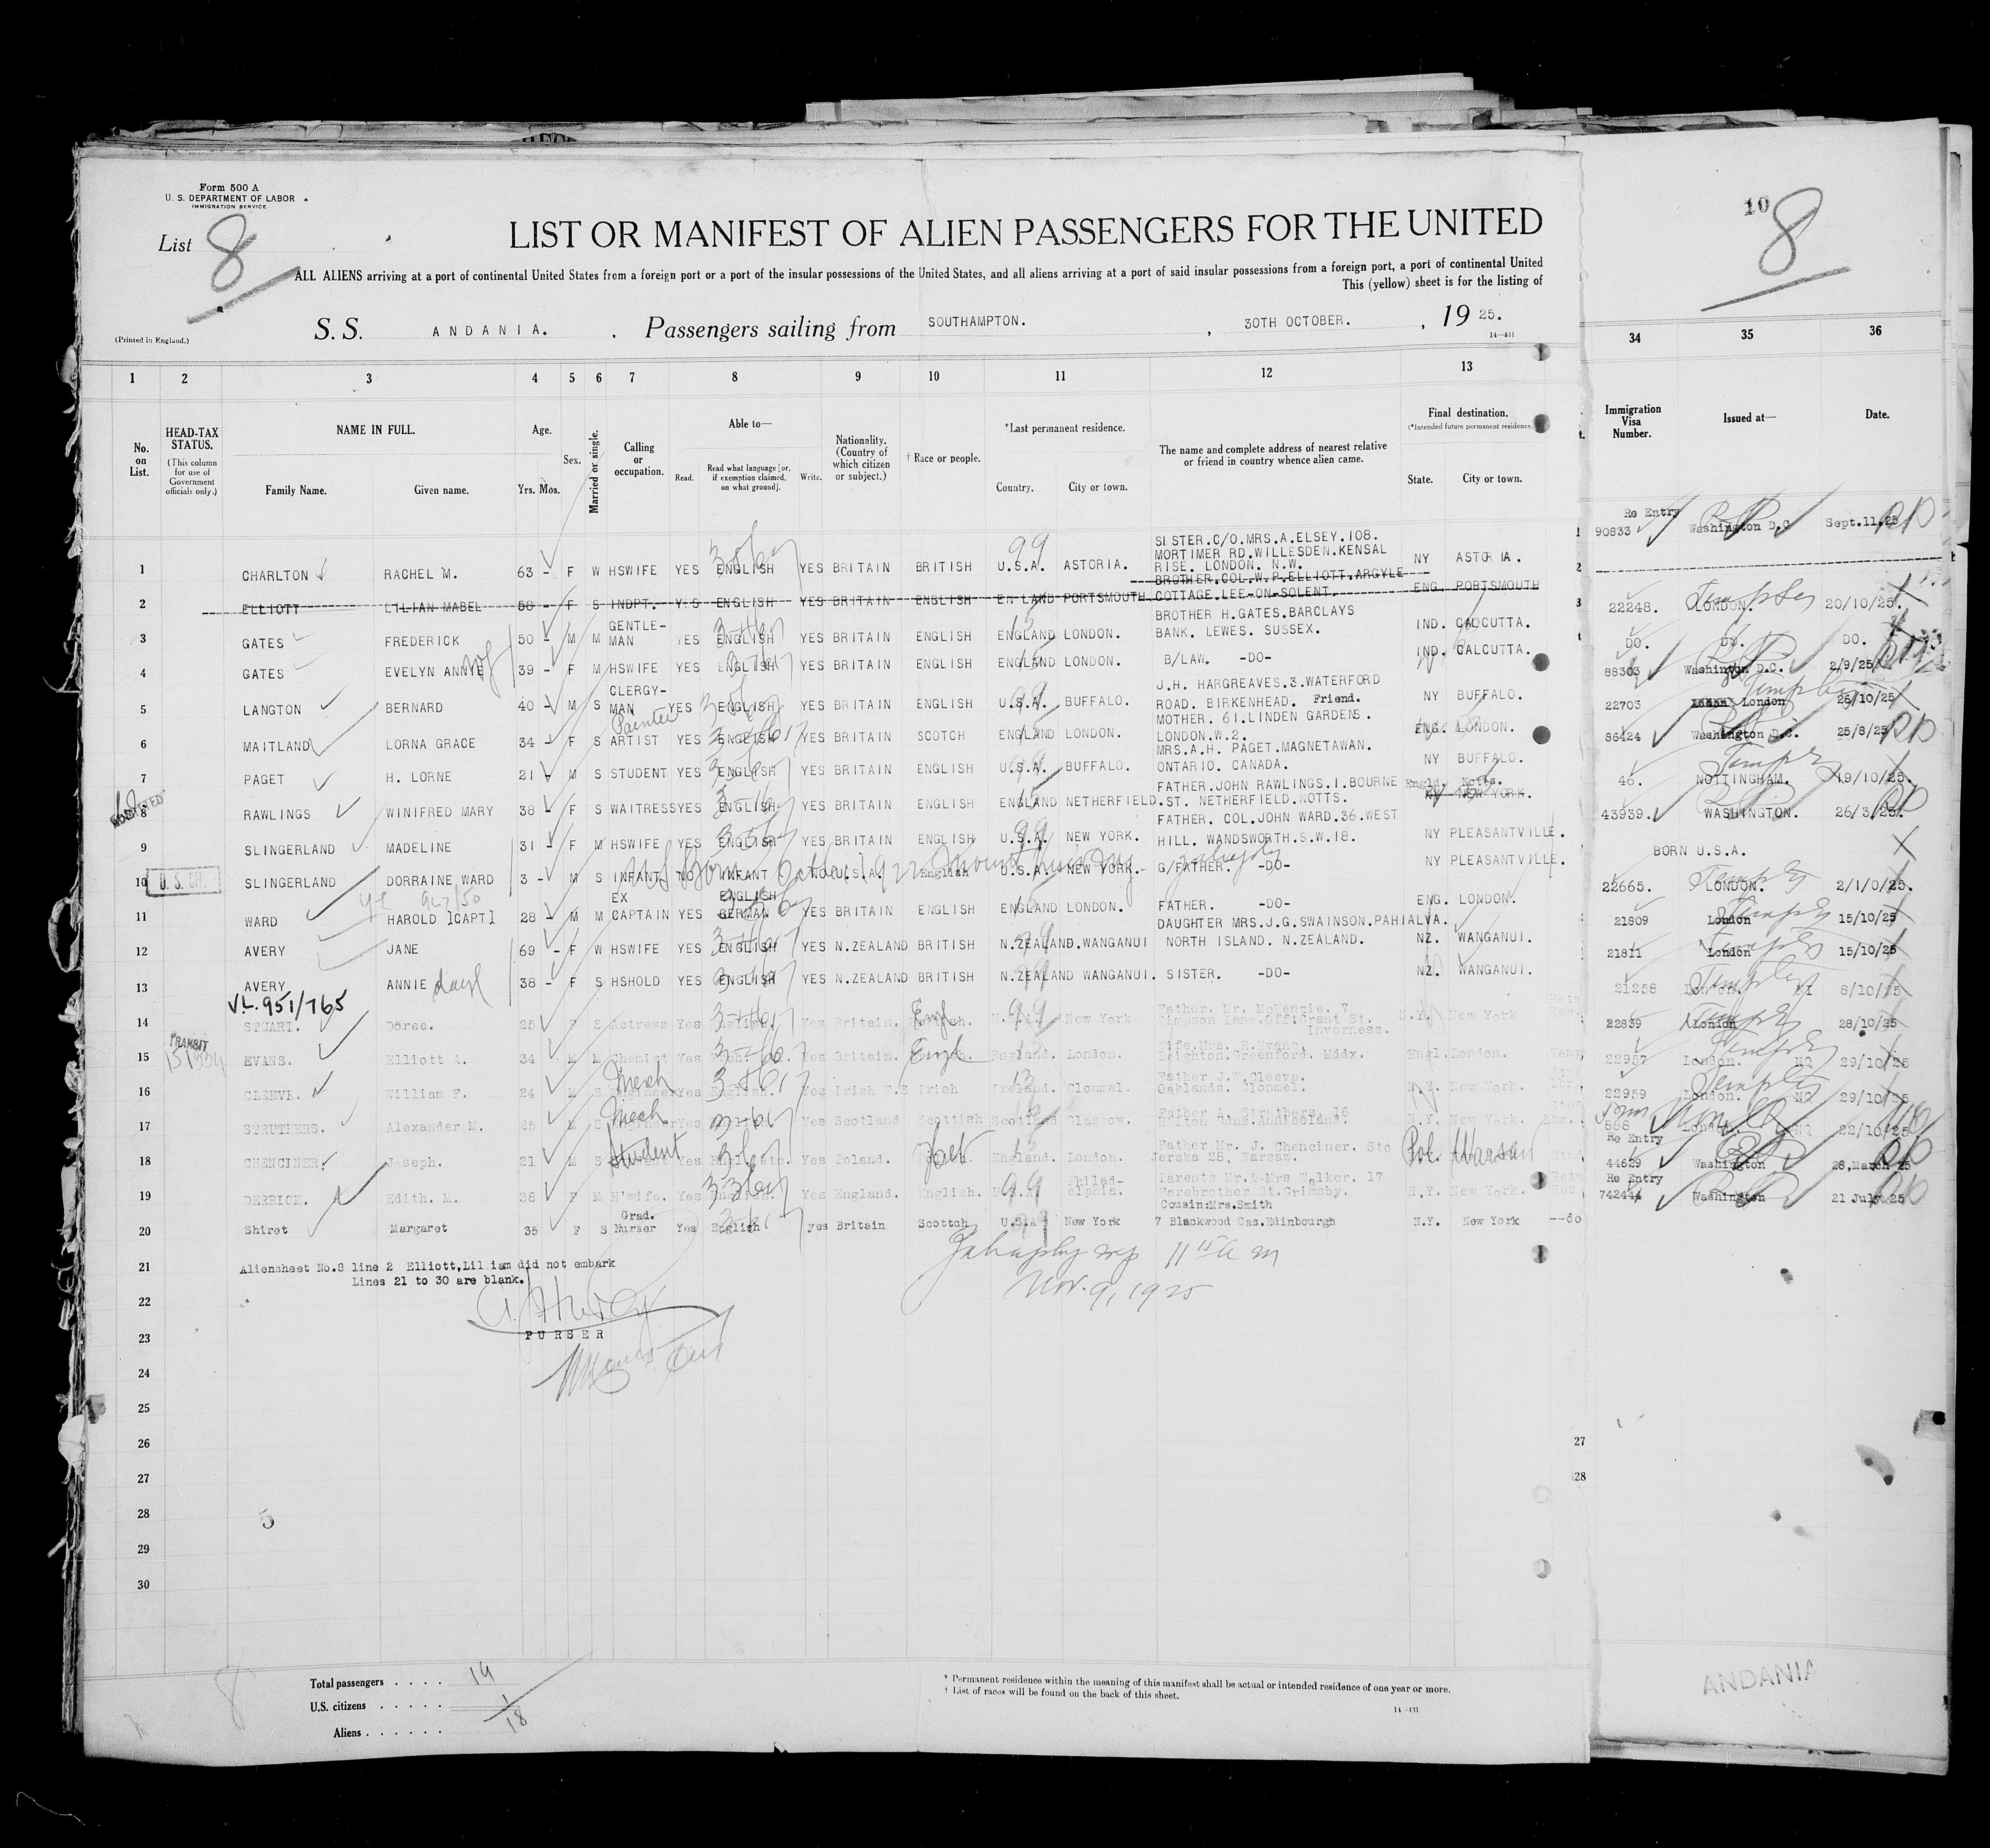 Form 500 A
U. S. DEPARTMENT OF LABOR
IMMIGRATION SERVICE
List 8
LIST OR MANIFEST OF ALIEN PASSENGERS FOR THE UNITED
ALL ALIENS arriving at a port of continental United States from a foreign port or a port of the insular possessions of the United States, and all aliens arriving at a port of said insular possessions from a foreign port, a port of continental United
This (yellow) sheet is for the listing of
(Printed in England.)
S.S. ANDANIA. , Passengers sailing from SOUTHAMPTON. , 30TH OCTOBER. , 19 25.
14—431
10
8
1 2 3 4 5 6 7 8 9 10 11 12 13
34 35 36
No. on List.
HEAD-TAX STATUS. (This column for use of Government officials only.)
NAME IN FULL. Family Name. Given name.
Age. Yrs. Mos.
Sex.
Married or single.
Calling or occupation.
Able to— Read. Read what language [or, if exemption claimed, on what ground]. Write.
Nationality. (Country of which citizen or subject.)
† Race or people.
*Last permanent residence. Country. City or town.
The name and complete address of nearest relative or friend in country whence alien came.
Final destination. (*Intended future permanent residence.) State. City or town.
Immigration Visa Number. Issued at— Date.
1 CHARLTON RACHEL M. 63 - F W HSWIFE YES ENGLISH YES BRITAIN BRITISH U.S.A. ASTORIA. SISTER.C/O.MRS.A.ELSEY.108. MORTIMER RD.WILLESDEN.KENSAL RISE. LONDON. N.W. NY ASTORIA. Re Entry 90833 Washington D.C Sept.11,25
2 ELLIOTT LILIAN MABEL 58 - F S INDPT. YES ENGLISH YES BRITAIN ENGLISH ENGLAND PORTSMOUTH BROTHER.COL.W.P.ELLIOTT.ARGYLE COTTAGE.LEE-ON-SOLENT. ENG. PORTSMOUTH
3 GATES FREDERICK 50 - M M GENTLE-MAN YES ENGLISH YES BRITAIN ENGLISH ENGLAND LONDON. BROTHER H.GATES.BARCLAYS BANK. LEWES. SUSSEX. IND. CALCUTTA. 22248. LONDON. 20/10/25.
4 GATES EVELYN ANNIE wf 39 - F M HSWIFE YES ENGLISH YES BRITAIN ENGLISH ENGLAND LONDON. B/LAW. -DO- IND. CALCUTTA. DO. DO. DO.
5 LANGTON BERNARD 40 - M S CLERGY-MAN YES ENGLISH YES BRITAIN ENGLISH U.S.A. BUFFALO. J.H. HARGREAVES.3.WATERFORD ROAD. BIRKENHEAD. Friend. NY BUFFALO. 88303 Washington D.C. 2/9/25
6 MAITLAND LORNA GRACE 34 - F S Painter ARTIST YES ENGLISH YES BRITAIN SCOTCH ENGLAND LONDON. MOTHER. 61.LINDEN GARDENS. LONDON.W.2. ENG. LONDON. 22703 London 28/10/25
7 PAGET H. LORNE 21 - M S STUDENT YES ENGLISH YES BRITAIN ENGLISH U.S.A. BUFFALO. MRS.A.H. PAGET.MAGNETAWAN. ONTARIO. CANADA. NY BUFFALO. 86424 Washington D.C. 25/8/25
ADMITTED
8 RAWLINGS WINIFRED MARY 38 - F S WAITRESS YES ENGLISH YES BRITAIN ENGLISH ENGLAND NETHERFIELD. FATHER.JOHN RAWLINGS.1.BOURNE ST. NETHERFIELD.NOTTS. Engld. Notts. NY NEW YORK. 46. NOTTINGHAM. 19/10/25.
9 SLINGERLAND MADELINE 31 - F M HSWIFE YES ENGLISH YES BRITAIN ENGLISH U.S.A. NEW YORK. FATHER. COL.JOHN WARD.36.WEST HILL. WANDSWORTH.S.W.18. NY PLEASANTVILLE. 43939. WASHINGTON. 26/3/25.
10 U. S. CIT. SLINGERLAND DORRAINE WARD 3 - M S INFANT NO INFANT NO U.S.A. English U.S.A. NEW YORK. G/FATHER. -DO- NY PLEASANTVILLE. BORN U.S.A.
11 WARD HAROLD [CAPT] 28 - M M EX CAPTAIN YES ENGLISH GERMAN YES BRITAIN ENGLISH ENGLAND LONDON. FATHER. -DO- ENG. LONDON. 22665. LONDON. 2/1/0/25.
12 AVERY JANE 69 - F W HSWIFE YES ENGLISH YES N.ZEALAND BRITISH N.ZEALAND.WANGANUI DAUGHTER MRS.J.G.SWAINSON.PAHIALVA. NORTH ISLAND. N.ZEALAND. NZ. WANGANUI. 21809 London 15/10/25
13 AVERY ANNIE daug 38 - F S HSHOLD YES ENGLISH YES N.ZEALAND BRITISH N.ZEALAND WANGANUI. SISTER. -DO- NZ. WANGANUI. 21811 London 15/10/25
V.L. 951/765
14 STUART. Doree. 25 F S Actress Yes English. Yes Britain. Engl U.S.A. New York Father. Mr. McKenzie. 7 Simpson Lane.Off:Grant St. Inverness. N.Y. New York 21258 8/10/25
TRANSIT
15 EVANS. Elliott A. 34 M M Chemist Yes Yes Britain. Engl England. London. Wife.Mrs. E.Evans. Leighton.Greenford. Mddx. Engl. London. 22839 London 28/10/25
16 CLEEVE. William F. 24 M S Mech Engineer Yes English. Yes Irish F.S Irish Ireland. Clonmel. Father J.W.Cleeve. Oaklands. Clonmel. N.Y. New York. 22957 London. NQ 29/10/25
17 STRUTHERS. Alexander M. 25 M S Mech Yes Yes Scotland Scottish Scotland Glasgow. Father A. Struthers. 16 N.Y. New York. 22959 London. NQ 29/10/25
18 CHENCINER. Joseph. 21 M S Student Yes Yes Poland. England. London. Father Mr. J. Chenciner. Sto Jerska 28, Warsaw. Pol. Warsaw 888 London. NQ 22/10/25
19 DERRICK. Edith. M. 38 F M H'wife. Yes English. Yes England. English. U.S.A. Philad-elphia. Parents Mr.&Mrs Walker. 17 Forebrother St.Grimsby. N.Y. New York. Re Entry 44629 Washington 28,March 25
20 Shiret Margaret 35 F S Grad. Nurser Yes English yes Britain Scottch U.S.A New York Cousin:Mrs.Smith 7 Blackwood Cas.Edinbourgh N.Y. New York --do Re Entry 742444 Washington 21 July 25
21 Aliensheet No.8 line 2 Elliott,Lilliam did not embark
Lines 21 to 30 are blank.
11 15 a m
Nov. 9, 1925
22
23 PURSER
24
25
26
27
28
29
30
27
28
5
8
Total passengers . . . . . 19
U.S. citizens . . . . . 1
Aliens . . . . . . 18
* Permanent residence within the meaning of this manifest shall be actual or intended residence of one year or more.
† List of races will be found on the back of this sheet.
14—431
ANDANIA